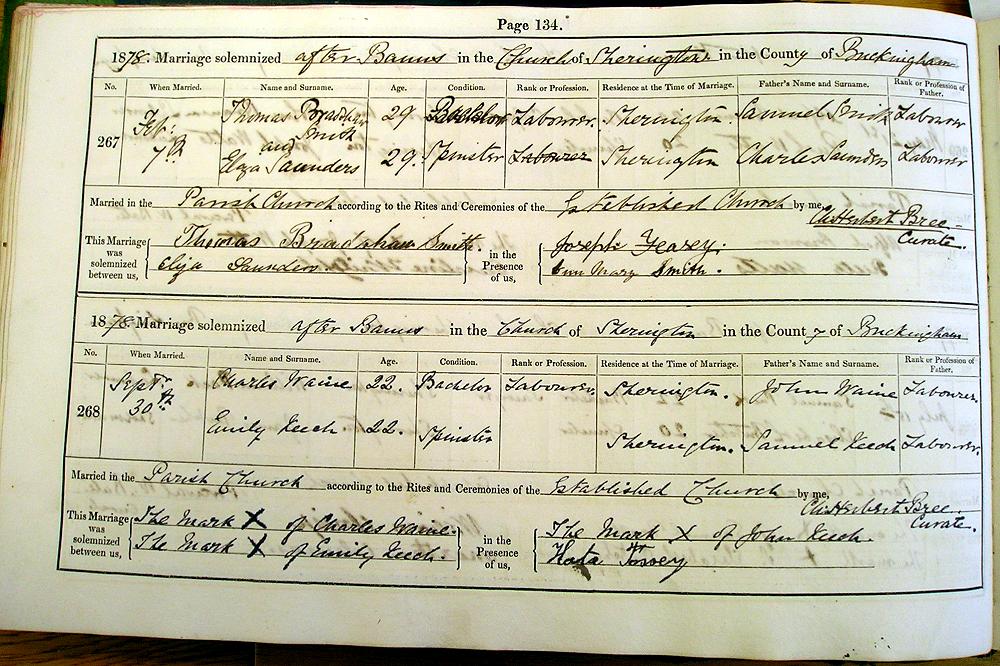 Page 134.
1878. Marriage solemnized after Banns in the Church of Sherington in the County of Buckingham
No. When Married. Name and Surname. Age. Condition. Rank or Profession. Residence at the Time of Marriage. Father's Name and Surname. Rank or Profession of Father.
267 Feb: 7th Thomas Bradshaw Smith 29 Bachelor Labourer. Sherington. Samuel Smith Labourer
and
Eliza Saunders 29. Spinster Labourer Sherington Charles Saunders Labourer
Married in the Parish Church according to the Rites and Ceremonies of the Established Church by me, Herbert Bree - Curate.
This Marriage was solemnized between us, Thomas Bradshaw Smith. in the Presence of us, Joseph
Eliza Saunders. Ann Mary Smith.
1878. Marriage solemnized after Banns in the Church of Sherington in the County of Buckingham
No. When Married. Name and Surname. Age. Condition. Rank or Profession. Residence at the Time of Marriage. Father's Name and Surname. Rank or Profession of Father.
268 Sept: 30th Charles Waine 22. Bachelor Labourer. Sherington. John Waine Labourer.
Emily Keech 22. Spinster Sherington. Samuel Keech Labourer.
Married in the Parish Church according to the Rites and Ceremonies of the Established Church by me, Herbert Bree. Curate.
This Marriage was solemnized between us, The Mark X of Charles Waine. in the Presence of us, The Mark X of John Keech.
The Mark X of Emily Keech.